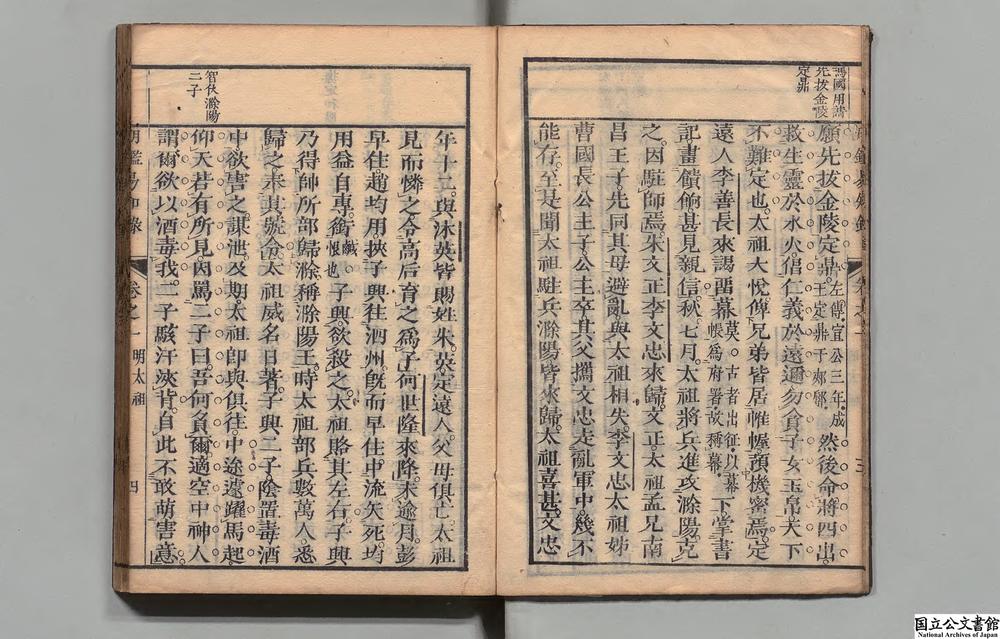 馮國用請
先拔金陵
定鼎
願先拔金陵定鼎。左傳宣公三年成王定鼎于郟鄏。然後命將四出。
救生靈於水火。倡仁義於遠邇。勿貪子女玉帛。天下
不難定也。太祖大悅俾兄弟皆居帷幄預機密焉。定
遠人李善長來謁西幕莫。古者出征以幕帳爲府署故稱幕。下。掌書
記畫饋餉甚見親信。秋七月。太祖將兵進攻滁陽。克
之。因駐師焉。朱文正李文忠來歸。文正太祖孟兄南
昌王子。先同其母避亂。與太祖相失李文忠太祖姊
曹國長公主子。公主卒其父攜文忠走亂軍中。幾不
能存。至是聞太祖駐兵滁陽。皆來歸太祖喜甚。文忠
三
年十二。與沐英皆賜姓朱。英定遠人。父母俱亡。太祖
見而憐之令高后育之爲子何世隆來降。未逾月。彭
早住趙均用挾子興往泗州。旣而早住中流矢死均
用益自專。銜鹹。恨也子興欲殺之。太祖賂其左右。子興
乃得帥所部歸滁稱滁陽王。時太祖部兵數萬人。悉
歸之奉其號令太祖威名日著。子興二子陰置毒酒
中。欲害之。謀泄。及期。太祖卽與俱往。中途遽躍馬起。
仰天若有所見。因罵二子曰。吾何負爾適空中神人
謂爾欲以酒毒我。二子駭汗浹背。自此不敢萌害意。
智伏滁陽
二子
卷之一 明太祖 四
国立公文書館
National Archives of Japan